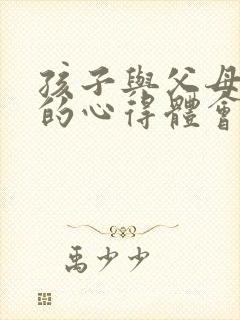 孩子與父母
的心得體會
禹少少